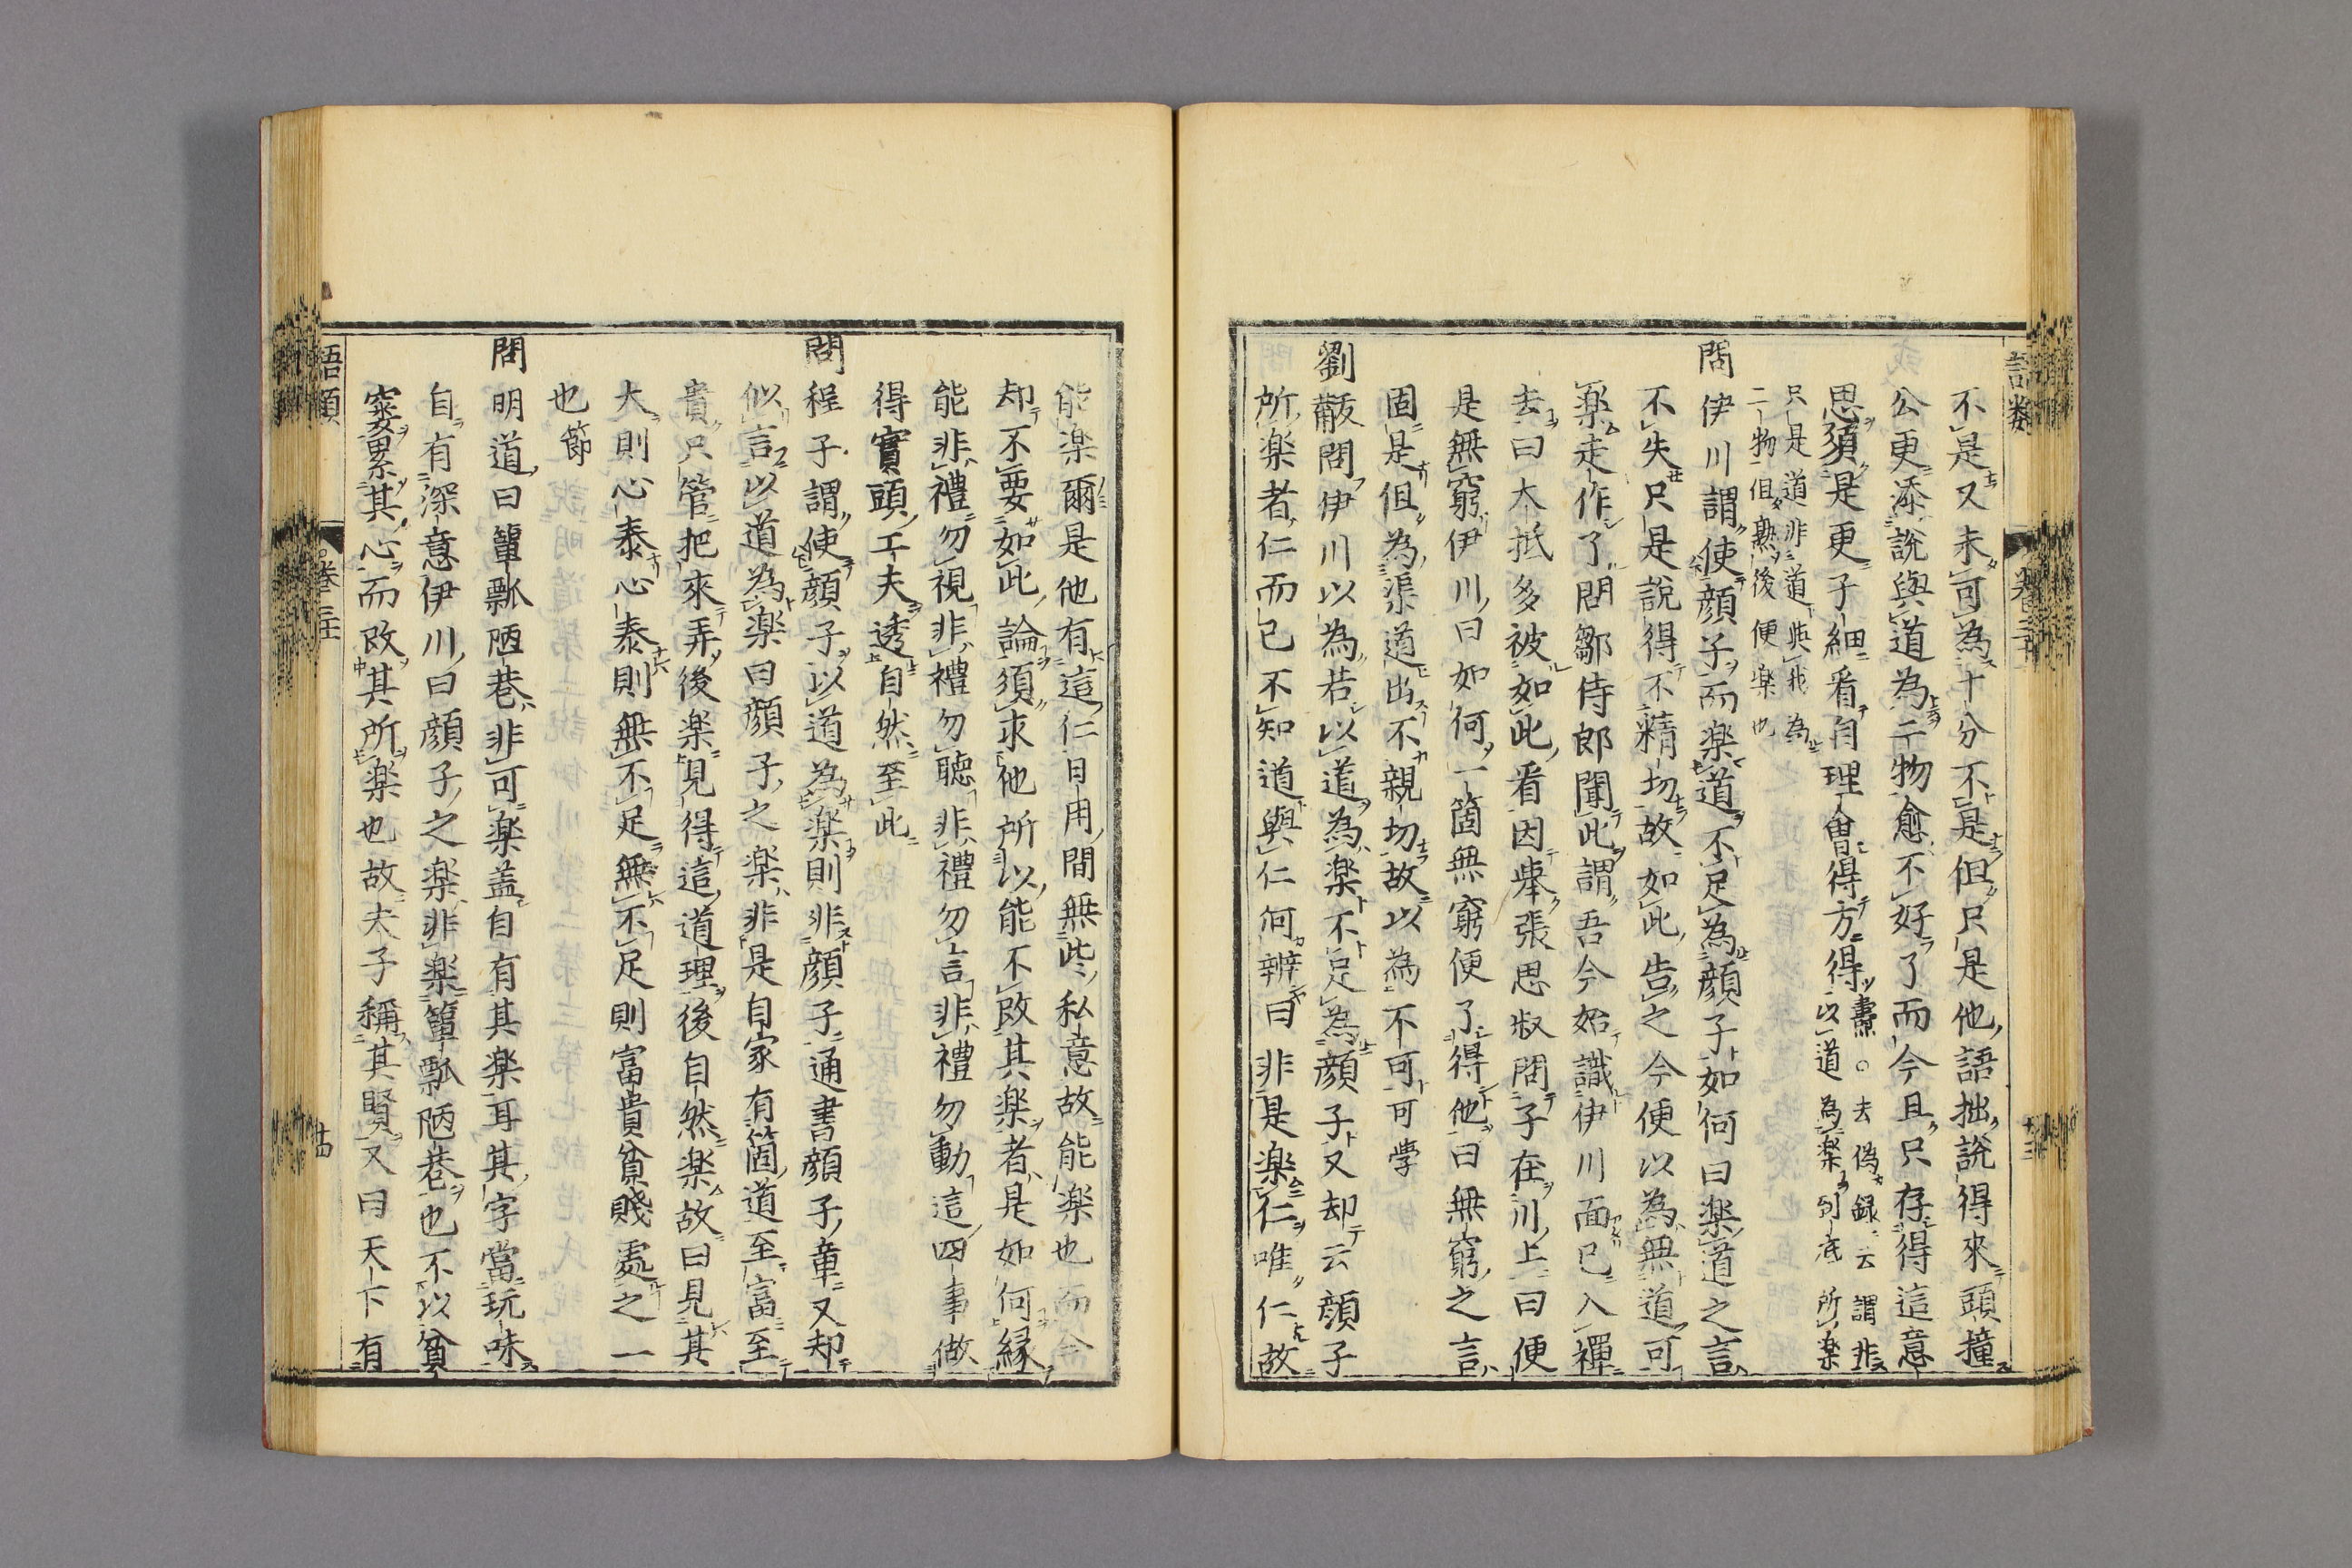 語類
卷三十一
十三
不是又未可為十分不是但只是他語拙說得來頭撞
公更添說與道為二物愈不好了而今且只存得這意
思須是更子細看自理會得方得燾○去偽録云謂非
以道為楽到底所楽
只是道非道與我為
二物但熟後便楽也
問伊川謂使顔子而楽道不足為顔子如何曰楽道之言
不失只是說得不精切故如此告之今便以為無道可
楽走作了問鄒侍郎聞此謂吾今始識伊川面已入禪
去曰大抵多被如此看因舉張思叔問子在川上曰便
是無窮伊川曰如何一箇無窮便了得他曰無窮之言
固是但為渠道出不親切故以為不可可學
劉黻問伊川以為若以道為楽不足為顔子又却云顔子
所楽者仁而已不知道與仁何辨曰非是楽仁唯仁故
能楽爾是他有這仁日用間無些私意故能楽也而今
却不要如此論須求他所以能不改其楽者是如何縁
能非禮勿視非禮勿聽非禮勿言非禮勿動這四事做
得實頭工夫透自然至此
問程子謂使顔子以道為楽則非顔子通書顔子章又却
似言以道為楽曰顔子之楽非是自家有箇道至富至
貴只管把來弄後楽見得這道理後自然楽故曰見其
大則心泰心泰則無不足無不足則富貴貧賤處之一
也節
問明道曰簞瓢陋巷非可楽盖自有其楽耳其字當玩味
自有深意伊川曰顔子之楽非楽簞瓢陋巷也不以貧
窶累其心而改其所楽也故夫子稱其賢又曰天下有
語類
卷三十一
十四